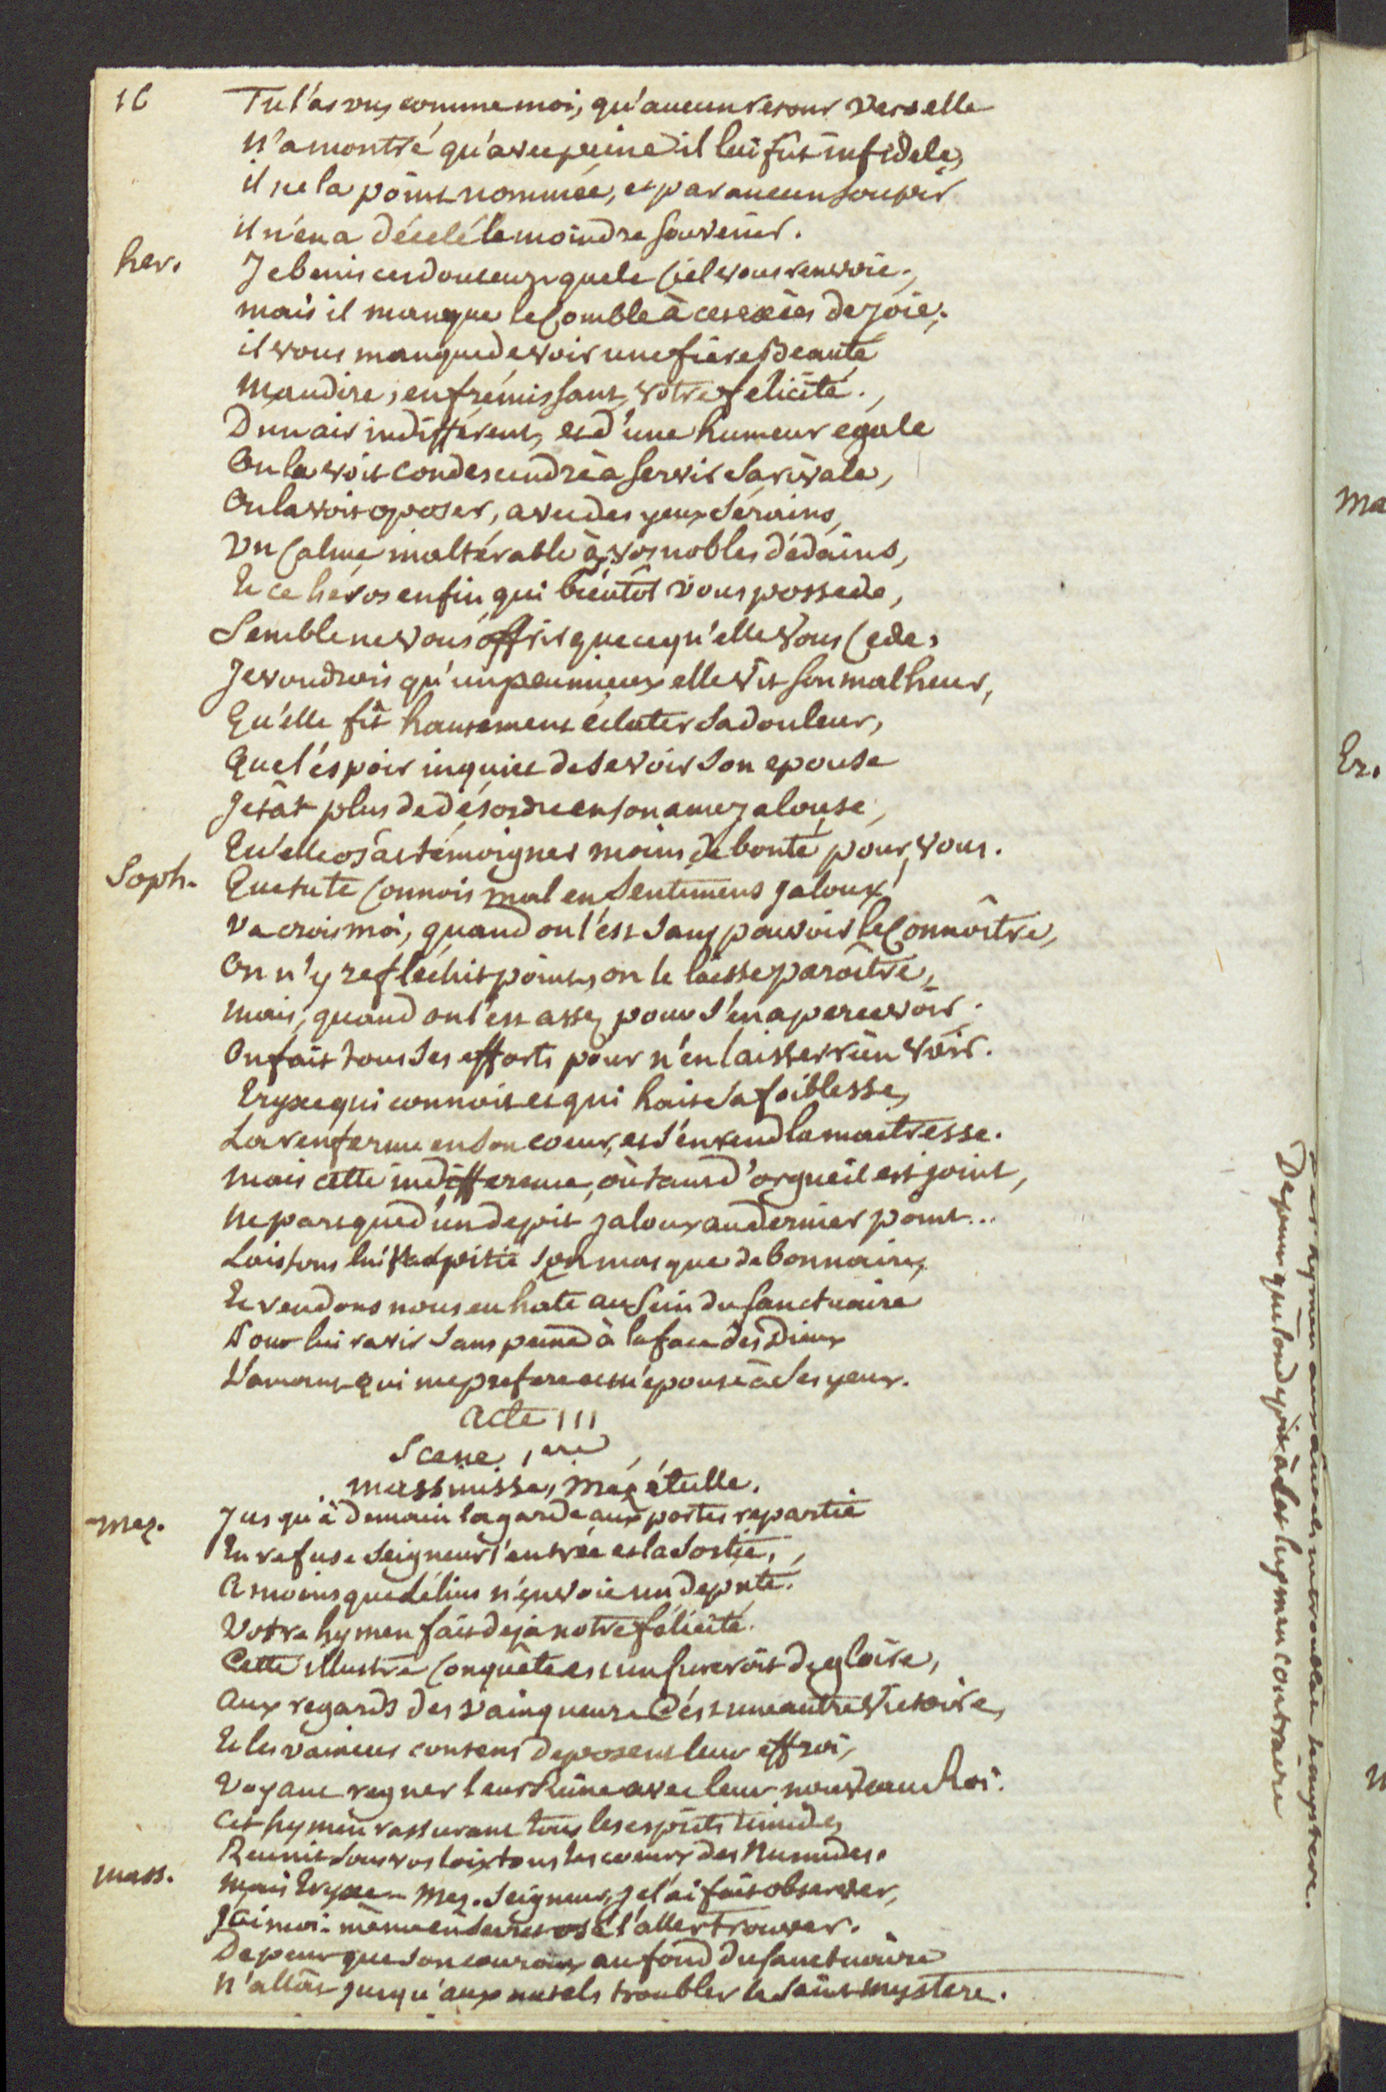 16
Tu l'as vu, comme moi, qu'aucun retour vers elle
N'a montré qu'avec peine il lui fût infidele,
il ne la point nommée, et par aucun soupir
il n'en a décelé le moindre souvenir.
her. Je benis ces douceurs que le Ciel vous renvoie,
mais il manque le Comble à ces excès de joie,
il vous manque de voir une fière beauté
Maudire, en frémissant, votre felicité.
D'un air indifférent, et d'une humeur egale
On la voit condescendre à servir sa rivale,
On la voit oposer, avec des yeux séreins,
Un Calme inaltérable à vos nobles dédains,
Et ce héros enfin qui bientôt vous possede,
Semble ne vous offrir que ce qu'elle vous Cede.
Je voudrois qu'un peu mieux elle vit son malheur,
Qu'elle fît hautement éclater sa douleur,
Que l'éspoir inquiet de se voir son epouse
Jetât plus de désordre en son ame jalouse,
Qu'elle osât témoigner moins de bonté pour vous.
Soph. Que tu te Connois mal en sentimens jaloux!
Va crois moi, quand on l'est sans pouvoir le Connoître,
On n'y refléchit point, on le laisse paroître,
Mais, quand on l'est assez pour s'en apercevoir
On fait tous ses efforts pour n'en laisser rien voir.
Eryxe qui connoit et qui hait sa foiblesse,
La renferme en son coeur, et s'en rend la maitresse.
Mais cette indifference, où tant d'orgueil est joint,
Ne part que d'un depit jaloux au dernier point...
Laissons lui son masque debonnaire,
Et rendons nous en hate au sein du sanctuaire
Pour lui ravir sans peine à la face des Dieux
L'amant qui me prefere et m'épouse à ses yeux.
Acte III
Scene 1ere
Massinisse, Mézétulle.
Mez. Jusqu'à demain la garde aux portes repartie
En refuse Seigneur l'entrée et la sortie,
A moins que Lélius n'envoie un deputé.
Votre hymen fait deja notre félicité.
Cette illustre Conquête est un surcroit de gloire,
Aux regards des vainqueurs C'est une autre victoire,
Et les vaincus contens deposent leur effroi,
Voyant regner leur Reine avec leur nouveau Roi.
Cet hymen rassurant tous les esprits timides
Reunit sous vos loix tous les coeurs des Numides.
Mass. Mais Eryxe - Mez. Seigneur, je l'ai fait observer,
J'ai moi-même ensuite osé l'aller trouver.
De peur que son couroux au fond du sanctuaire
N'allât jusqu'aux autels troubler le saint mystere.
De peur que son depit à cet hymen contraire
Ma
Er.